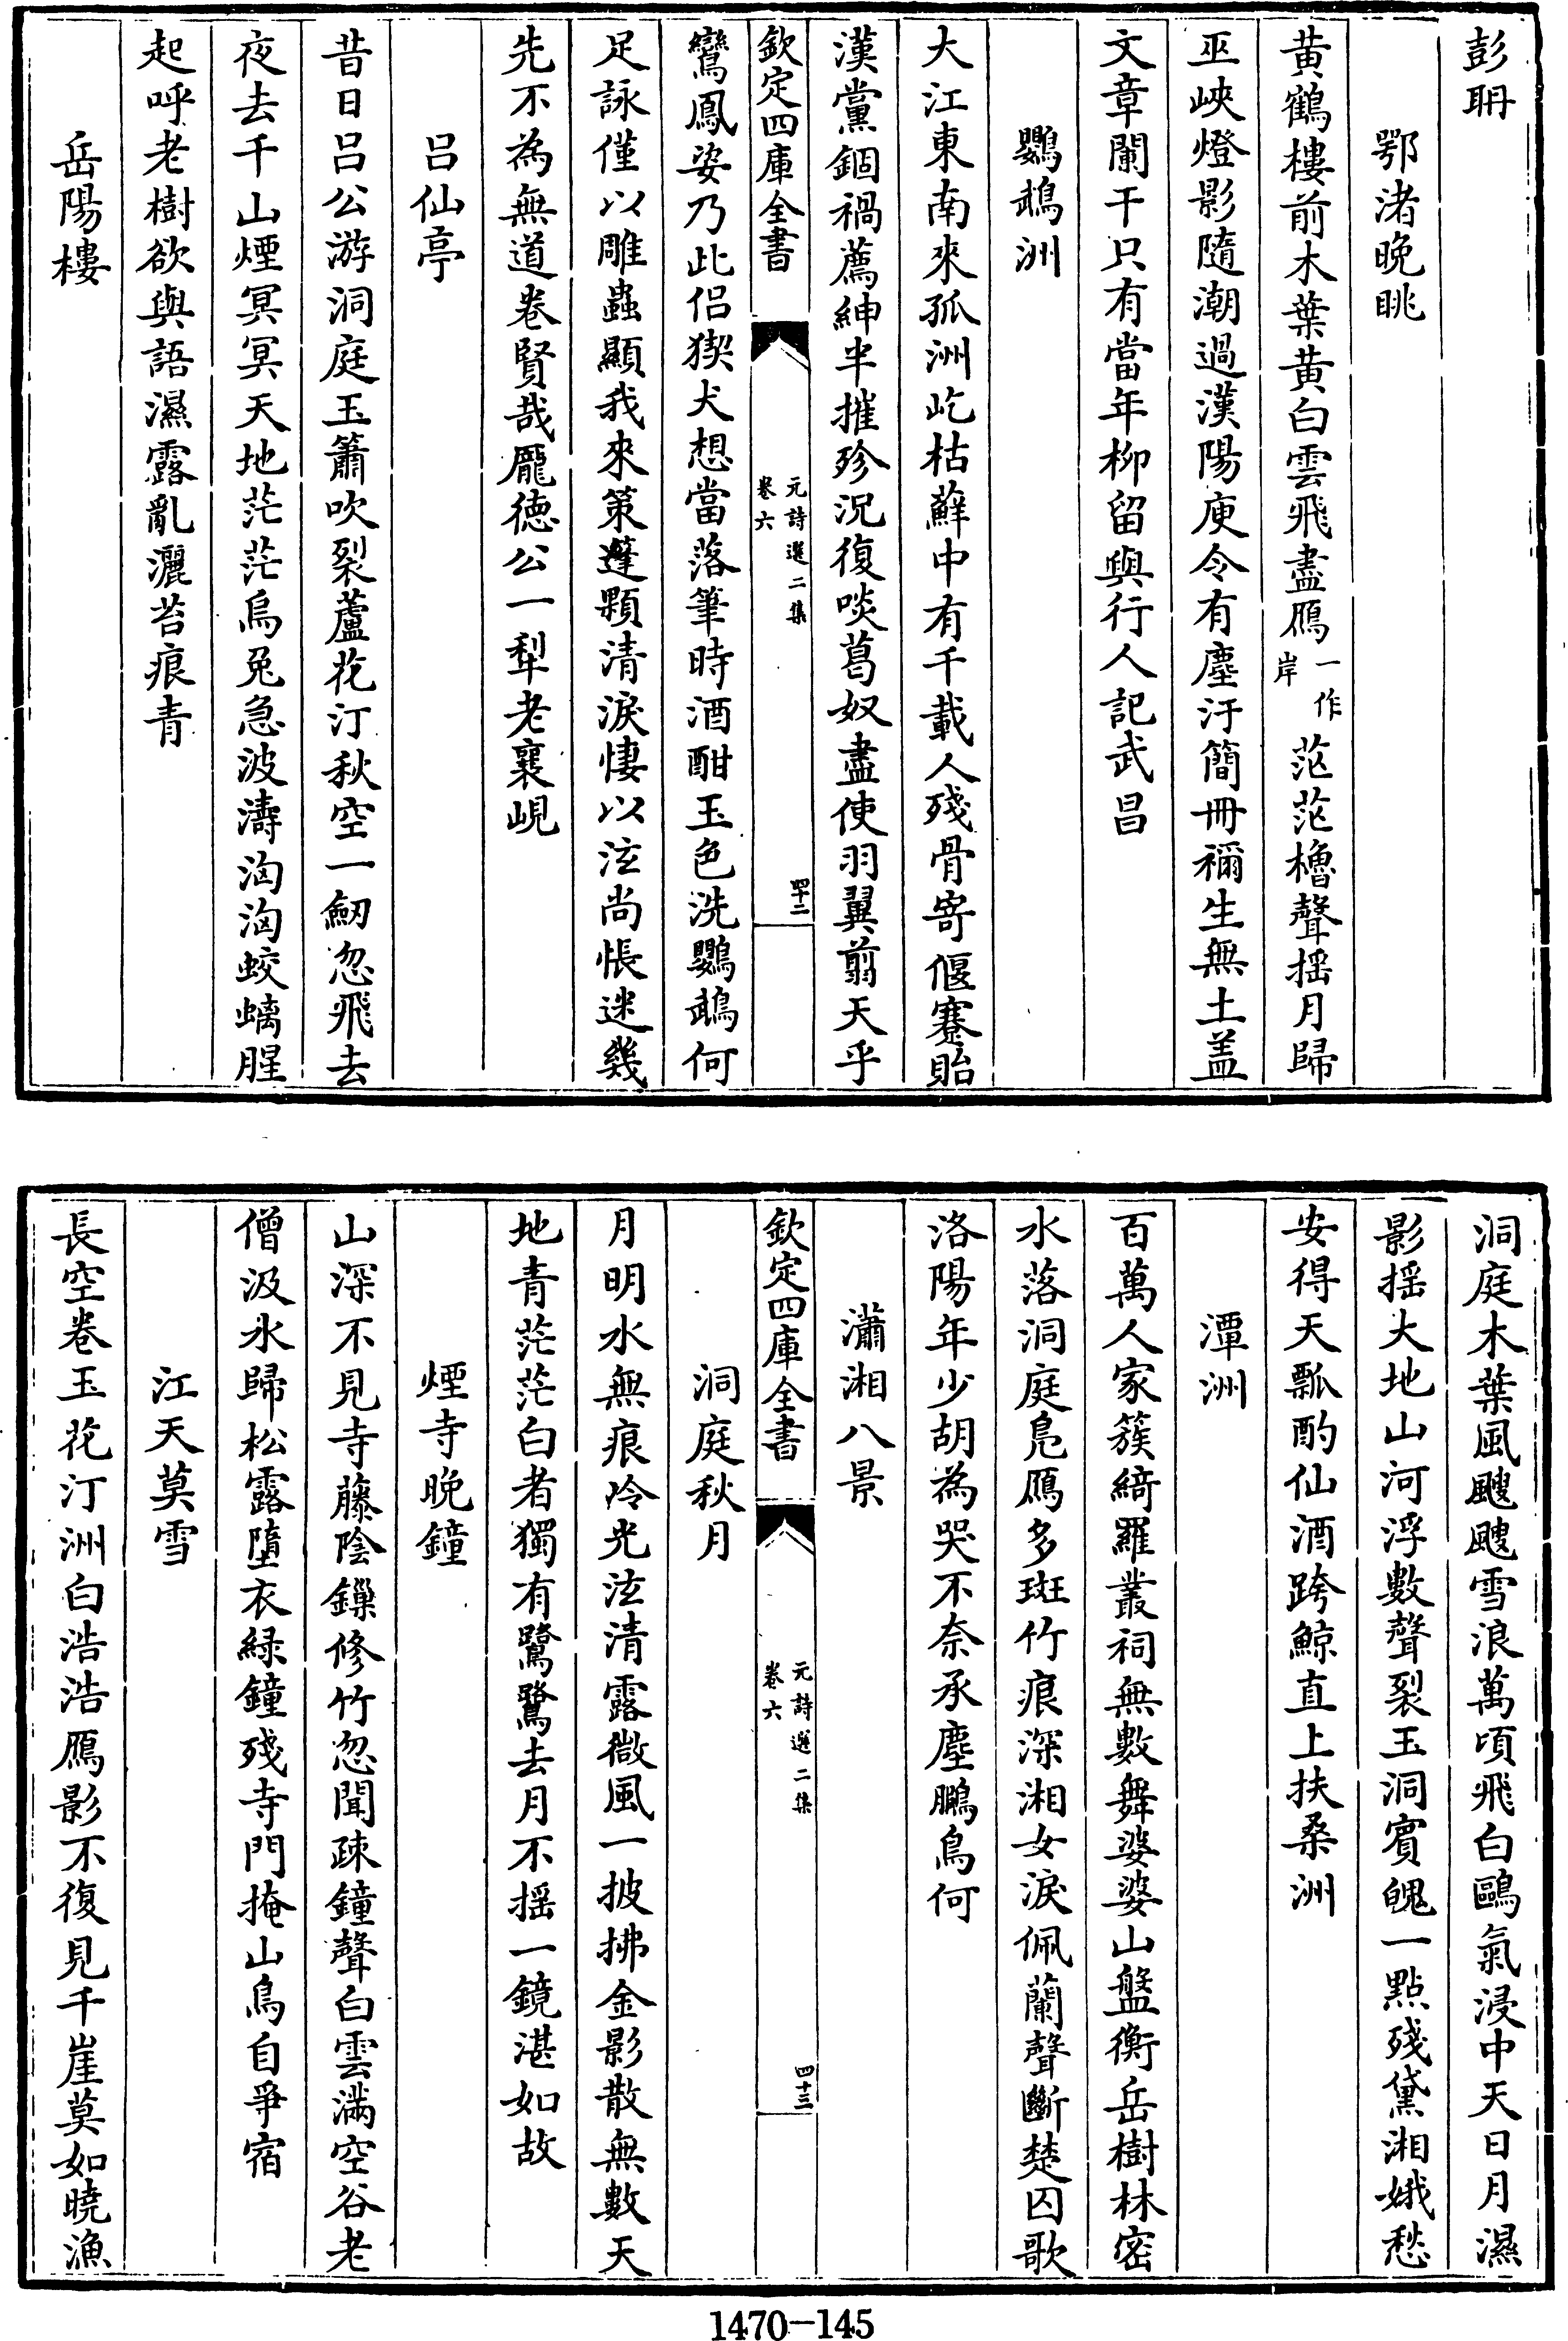 彭聃
鄂渚晚眺
黄鶴樓前木葉黄白雲飛盡鴈一作岸茫茫櫓聲揺月歸
巫峽燈影隨潮過漢陽庾令有塵汙簡冊禰生無土盖
文章闌干只有當年柳留與行人記武昌
鸚鵡洲
大江東南來孤洲屹枯蘚中有千載人殘骨寄偃蹇貽
漢黨錮禍薦紳半摧殄況復啖葛奴盡使羽翼翦天乎
欽定四庫全書
元詩選二集
卷六
四十二
鸞鳳姿乃此侣猰犬想當落筆時酒酣玉色洗鸚鵡何
足詠僅以雕蟲顯我來策蹇顆清淚悽以泫尚悵迷幾
先不為無道卷賢哉龐徳公一犁老襄峴
吕仙亭
昔日吕公游洞庭玉簫吹裂蘆花汀秋空一劒忽飛去
夜去千山煙冥冥天地茫茫烏兎急波濤洶洶蛟螭腥
起呼老樹欲與語濕露亂灑苔痕青
岳陽樓
洞庭木葉風颼颼雪浪萬頃飛白鷗氣浸中天日月濕
影揺大地山河浮數聲裂玉洞賓醜一點殘黛湘娥愁
安得天瓢酌仙酒跨鯨直上扶桑洲
潭洲
百萬人家簇綺羅叢祠無數舞婆娑山盤衡岳樹林密
水落洞庭鳬鴈多斑竹痕深湘女淚佩蘭聲斷楚囚歌
洛陽年少胡為哭不奈承塵鵩鳥何
瀟湘八景
欽定四庫全書
元詩選二集
卷六
四十三
洞庭秋月
月明水無痕冷光泫清露微風一披拂金影散無數天
地青茫茫白者獨有鷺鷺去月不揺一鏡湛如故
煙寺晚鐘
山深不見寺藤陰鏁修竹忽聞疎鐘聲白雲滿空谷老
僧汲水歸松露墮衣緑鐘殘寺門掩山鳥自爭宿
江天莫雪
長空卷玉花汀洲白浩浩鴈影不復見千崖莫如曉漁
1470-145